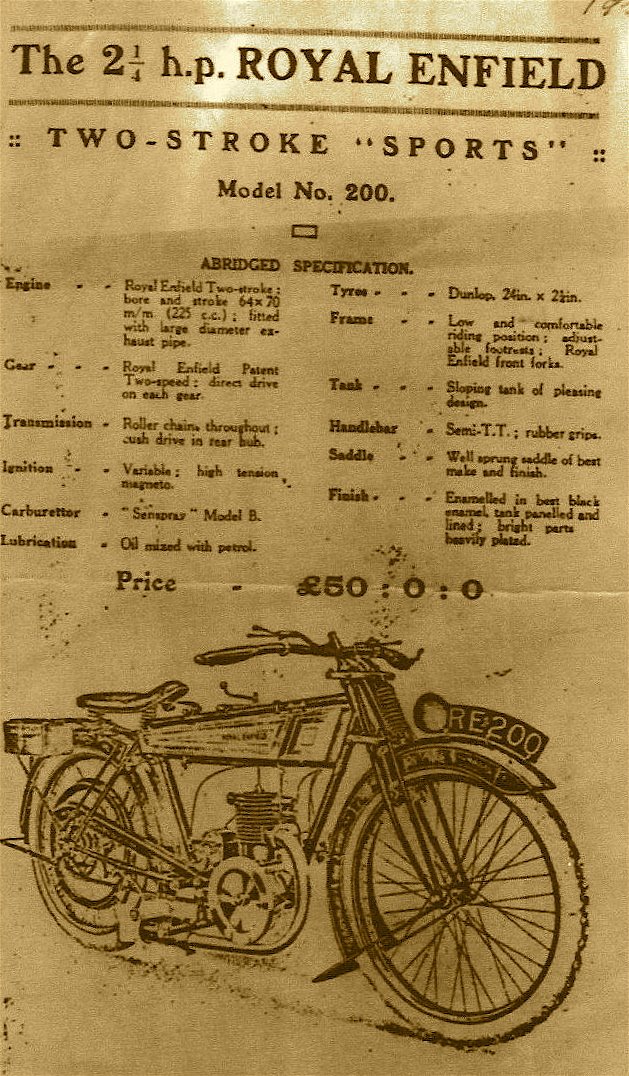 The 2¼ h.p. ROYAL ENFIELD
:: TWO-STROKE "SPORTS" ::
Model No. 200.
ABRIDGED SPECIFICATION.
Engine - - Royal Enfield Two-stroke;
bore and stroke 64×70
m/m (225 c.c.); fitted
with large diameter ex-
haust pipe.
Gear - - - Royal Enfield Patent
Two-speed; direct drive
on each gear.
Transmission - Roller chains throughout;
cush drive in rear hub.
Ignition - - Variable; high tension
magneto.
Carburettor - "Senspray" Model B.
Lubrication - Oil mixed with petrol.
Tyres - - - Dunlop, 24in. x 2¼in.
Frame - - - Low and comfortable
riding position; adjust-
able footrests; Royal
Enfield front forks.
Tank - - - Sloping tank of pleasing
design.
Handlebar - Semi-T.T.; rubber grips.
Saddle - - - Well sprung saddle of best
make and finish.
Finish - - - Enamelled in best black
enamel, tank panelled and
lined; bright parts
heavily plated.
Price - £50 : 0 : 0
RE200